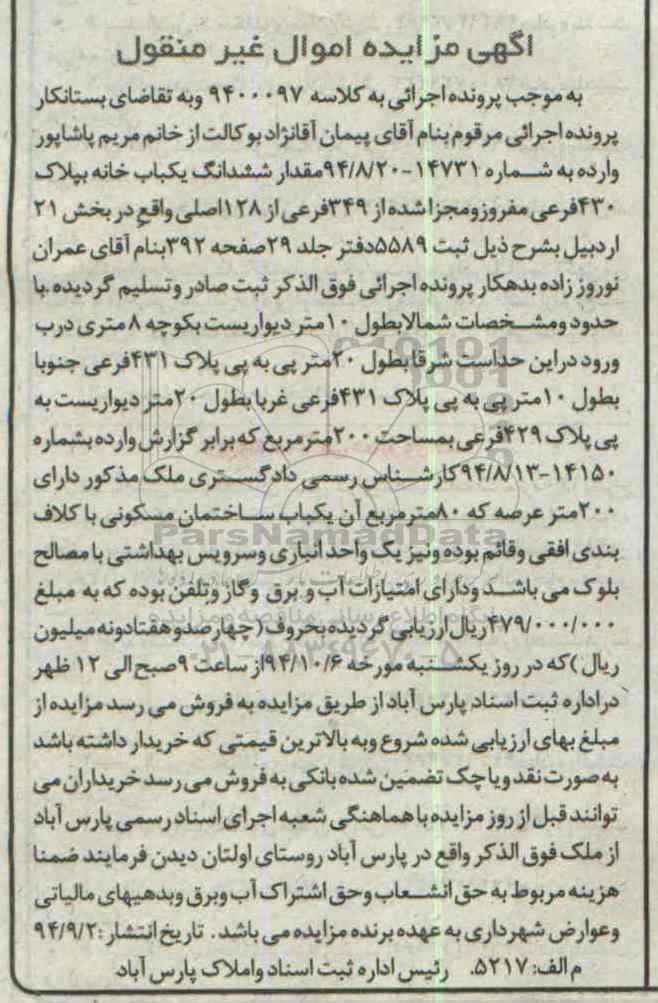 آگهی مزایده اموال غیر منقول
به موجب پرونده اجرائی به کلاسه ۹۴۰۰۰۹۷ وبه تقاضای بستانکار
پرونده اجرائی مرقوم بنام آقای پیمان آقانژاد بوکالت از خانم مریم پاشاپور
وارده به شماره ۱۴۷۳۱-۹۴/۸/۲۰مقدار ششدانگ یکباب خانه بپلاک
۴۳۰فرعی مفروزومجزا شده از ۳۴۹فرعی از ۱۲۸اصلی واقع در بخش ۲۱
اردبیل بشرح ذیل ثبت ۵۵۸۹دفتر جلد ۲۹صفحه ۳۹۲بنام آقای عمران
نوروز زاده بدهکار پرونده اجرائی فوق الذکر ثبت صادر وتسلیم گردیده .با
حدود ومشخصات شمالابطول ۱۰متر دیواریست بکوچه ۸ متری درب
ورود دراین حداست شرقا بطول ۲۰متر پی به پی پلاک ۴۳۱فرعی جنوبا
بطول ۱۰متر پی به پی پلاک ۴۳۱فرعی غربا بطول ۲۰متر دیواریست به
پی پلاک ۴۲۹فرعی بمساحت ۲۰۰مترمربع که برابر گزارش وارده بشماره
۱۴۱۵۰-۹۴/۸/۱۳کارشناس رسمی دادگستری ملک مذکور دارای
۲۰۰متر عرصه که ۸۰مترمربع آن یکباب ساختمان مسکونی با کلاف
بندی افقی وقائم بوده ونیز یک واحد انباری وسرویس بهداشتی با مصالح
بلوک می باشد ودارای امتیازات آب و برق وگاز وتلفن بوده که به مبلغ
۴۷۹/۰۰۰/۰۰۰ریال ارزیابی گردیده بحروف( چهارصدوهفتادونه میلیون
ریال )که در روز یکشنبه مورخه ۹۴/۱۰/۶از ساعت ۹صبح الی ۱۲ ظهر
دراداره ثبت اسناد پارس آباد از طریق مزایده به فروش می رسد مزایده از
مبلغ بهای ارزیابی شده شروع وبه بالاترین قیمتی که خریدار داشته باشد
به صورت نقد ویا چک تضمین شده بانکی به فروش می رسد خریداران می
توانند قبل از روز مزایده با هماهنگی شعبه اجرای اسناد رسمی پارس آباد
از ملک فوق الذکر واقع در پارس آباد روستای اولتان دیدن فرمایند ضمنا
هزینه مربوط به حق انشعاب وحق اشتراک آب وبرق وبدهیهای مالیاتی
وعوارض شهرداری به عهده برنده مزایده می باشد . تاریخ انتشار :۹۴/۹/۲
م الف: ۵۲۱۷. رئیس اداره ثبت اسناد واملاک پارس آباد
ParsNamadData
۰۲۱-۸۸۳۴۹۶۷۰-۵